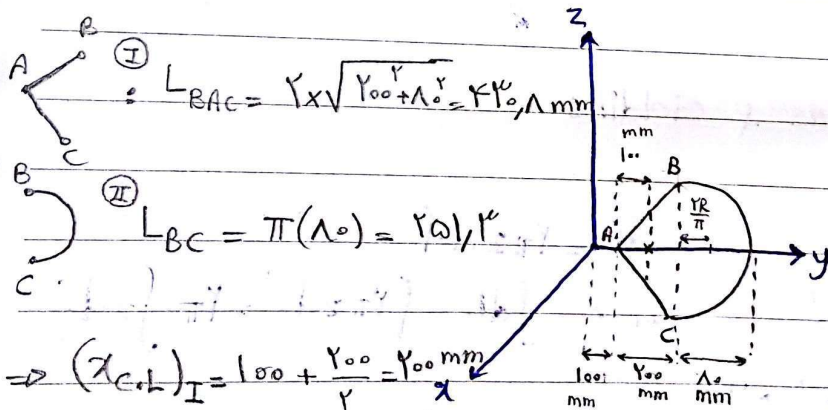 B
A
C
Ⓘ : L_BAC = ۲×√(۲۰۰^۲ + ۸۰^۲) = ۴۳۰,۸ mm.
B
C
Ⅱ L_BC = π(۸۰) = ۲۵۱,۳
⇒ (x_C.L)_I = ۱۰۰ + ۲۰۰/۲ = ۲۰۰ mm
z
mm
۱۰۰
B
۲R/π
A
y
C
x
۱۰۰ mm
۲۰۰ mm
۸۰ mm